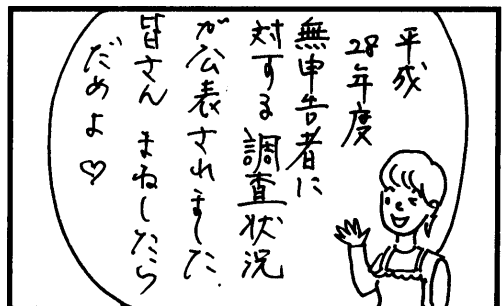 平成
28年度
無申告者に
対する調査状況
が公表されました.
皆さん まねしたら
だめよ♡